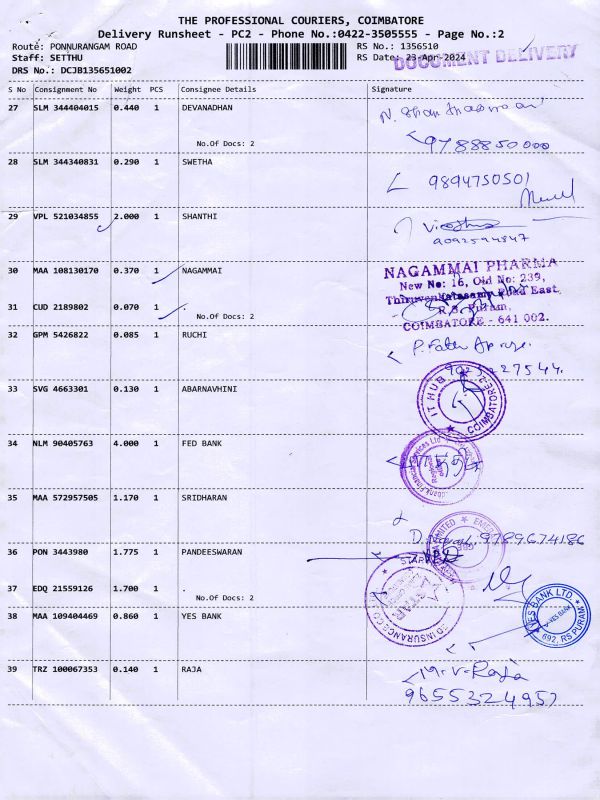 THE PROFESSIONAL COURIERS, COIMBATORE
Delivery Runsheet - PC2 - Phone No.:0422-3505555 - Page No.:2
Route: PONNURANGAM ROAD RS No.: 1356510
Staff: SETTHU RS Date: 23-Apr-2024
DOCUMENT DELIVERY
DRS No.: DCJB135651002
S No Consignment No Weight PCS Consignee Details Signature
27 SLM 344404015 0.440 1 DEVANADHAN
No.Of Docs: 2 9788850000
28 SLM 344340831 0.290 1 SWETHA
9894750501
29 VPL 521034855 2.000 1 SHANTHI
30 MAA 108130170 0.370 1 NAGAMMAI
NAGAMMAI PHARMA
New No: 16, Old No: 239,
Thiruvenkatasamy Road East,
R.S. Puram,
COIMBATORE - 641 002.
31 CUD 2189802 0.070 1 .
No.Of Docs: 2
32 GPM 5426822 0.085 1 RUCHI
33 SVG 4663301 0.130 1 ABARNAVHINI
IT HUB
COIMBATORE-2
34 NLM 90405763 4.000 1 FED BANK
35 MAA 572957505 1.170 1 SRIDHARAN
9789674186
36 PON 3443980 1.775 1 PANDEESWARAN
37 EDQ 21559126 1.700 1 .
No.Of Docs: 2
STAR
38 MAA 109404469 0.860 1 YES BANK
YES BANK LTD.
YES BANK
692, RS PURAM
39 TRZ 100067353 0.140 1 RAJA
M.V. Raja
9655324957